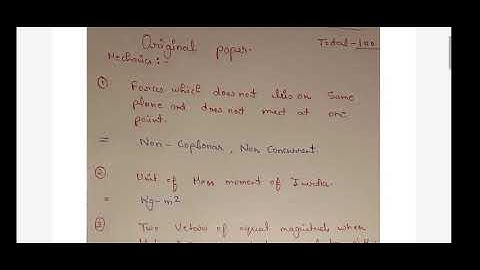 Original paper.
Total-100
Mechanics:-
① Forces which does not lies on same
plane and does not meet at one
point.
= Non-Coplonar, Non Concurrent.
② Unit of Mass moment of Inertia.
= kg-m²
③ Two Vetors of equal magnitude when